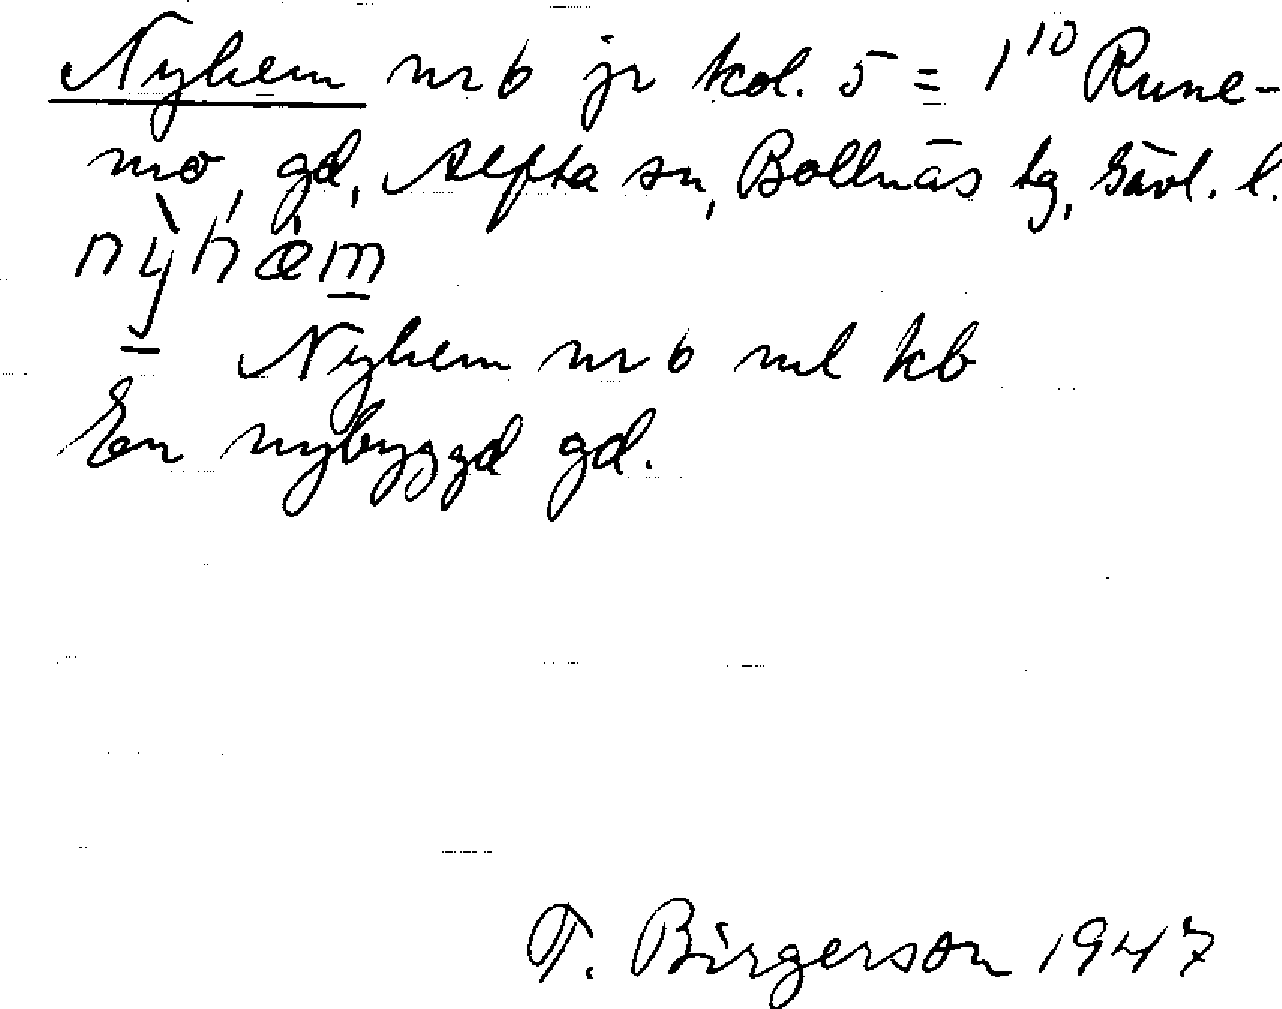 Nyhem nr 6 jr kol. 5 = 1¹⁰ Rune-
mo, gd, Alfta sn, Bollnäs tg, Gävl. l.
nỳhæm
Nyhem nr 6 ml kb
En nybyggd gd.
T. Birgerson 1947